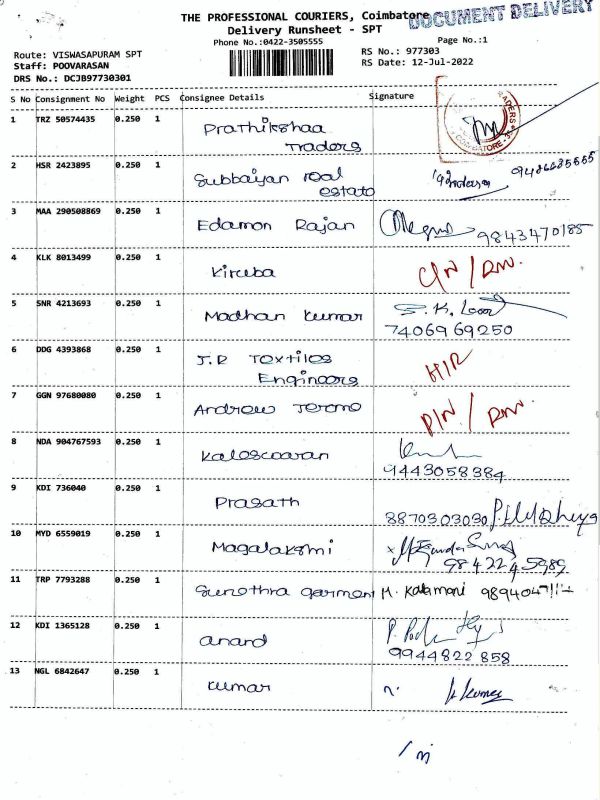 THE PROFESSIONAL COURIERS, Coimbatore
DOCUMENT DELIVERY
Delivery Runsheet - SPT
Phone No.:0422-3505555
Page No.:1
Route: VISWASAPURAM SPT
RS No.: 977303
Staff: POOVARASAN
RS Date: 12-Jul-2022
DRS No.: DCJB97730301
S No Consignment No Weight PCS Consignee Details Signature
1 TRZ 50574435 0.250 1 Prathikshaa
Traders
2 HSR 2423895 0.250 1 Subbaiyan real
estate
3 MAA 290508869 0.250 1 Edamon Rajan
9843470185
4 KLK 8013499 0.250 1 Kiruba C/N / RN.
5 SNR 4213693 0.250 1 Madhan Kumar S.K.
7406969250
6 DDG 4393868 0.250 1 J.R Textiles
Engineers H/R
7 GGN 97680080 0.250 1 Andrew Jerome D/N / RN.
8 NDA 904767593 0.250 1 Kaleswaran
9443058384
9 KDI 736040 0.250 1 Prasath
8870303030
10 MYD 6559019 0.250 1 Magalakshmi
9842245989
11 TRP 7793288 0.250 1 Sunethra garment M. Kalamani
12 KDI 1365128 0.250 1 anand
9944822858
13 NGL 6842647 0.250 1 Kumar